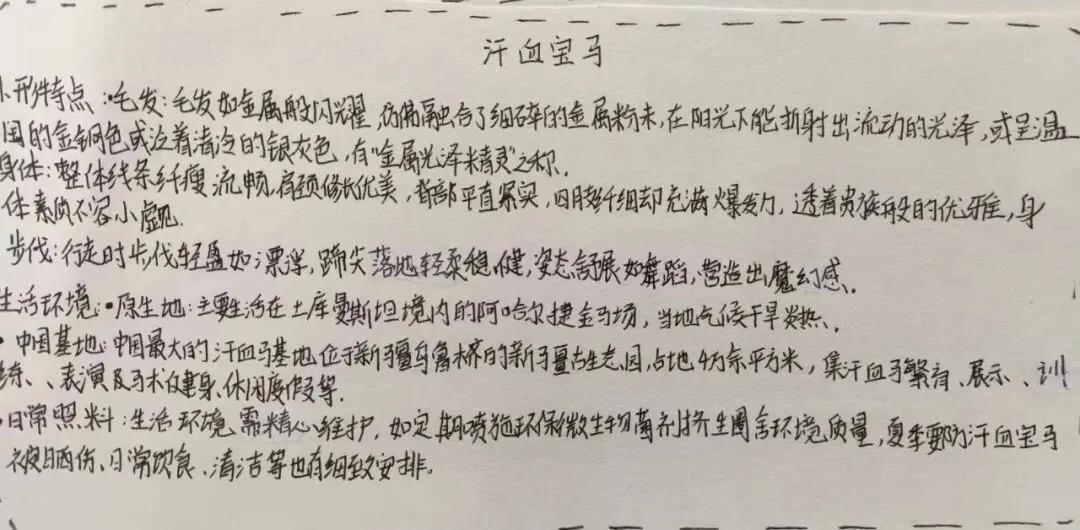 汗血宝马
外形特点：•毛发：毛发如金属般闪耀，仿佛融合了细碎的金属粉末，在阳光下能折射出流动的光泽，或呈温
润的金铜色或泛着清冷的银灰色，有“金属光泽精灵”之称。
身体：整体线条纤瘦流畅，肩颈修长优美，背部平直紧实，四肢纤细却充满爆发力，透着贵族般的优雅，身
体素质不容小觑。
步伐：行走时步伐轻盈如漂浮，蹄尖落地轻柔稳健，姿态舒展如舞蹈，营造出魔幻感。
生活环境：•原生地：主要生活在土库曼斯坦境内的阿哈尔捷金马场，当地气候干旱炎热。
•中国基地：中国最大的汗血马基地位于新疆乌鲁木齐的新疆古生态园，占地4万余平方米，集汗血马繁育、展示、训
练、表演及马术健身、休闲度假等。
•日常照料：生活环境需精心维护，如定期喷施环保微生物菌剂提升圈舍环境质量，夏季要防汗血宝马
被晒伤、日常饮食、清洁等也有细致安排。